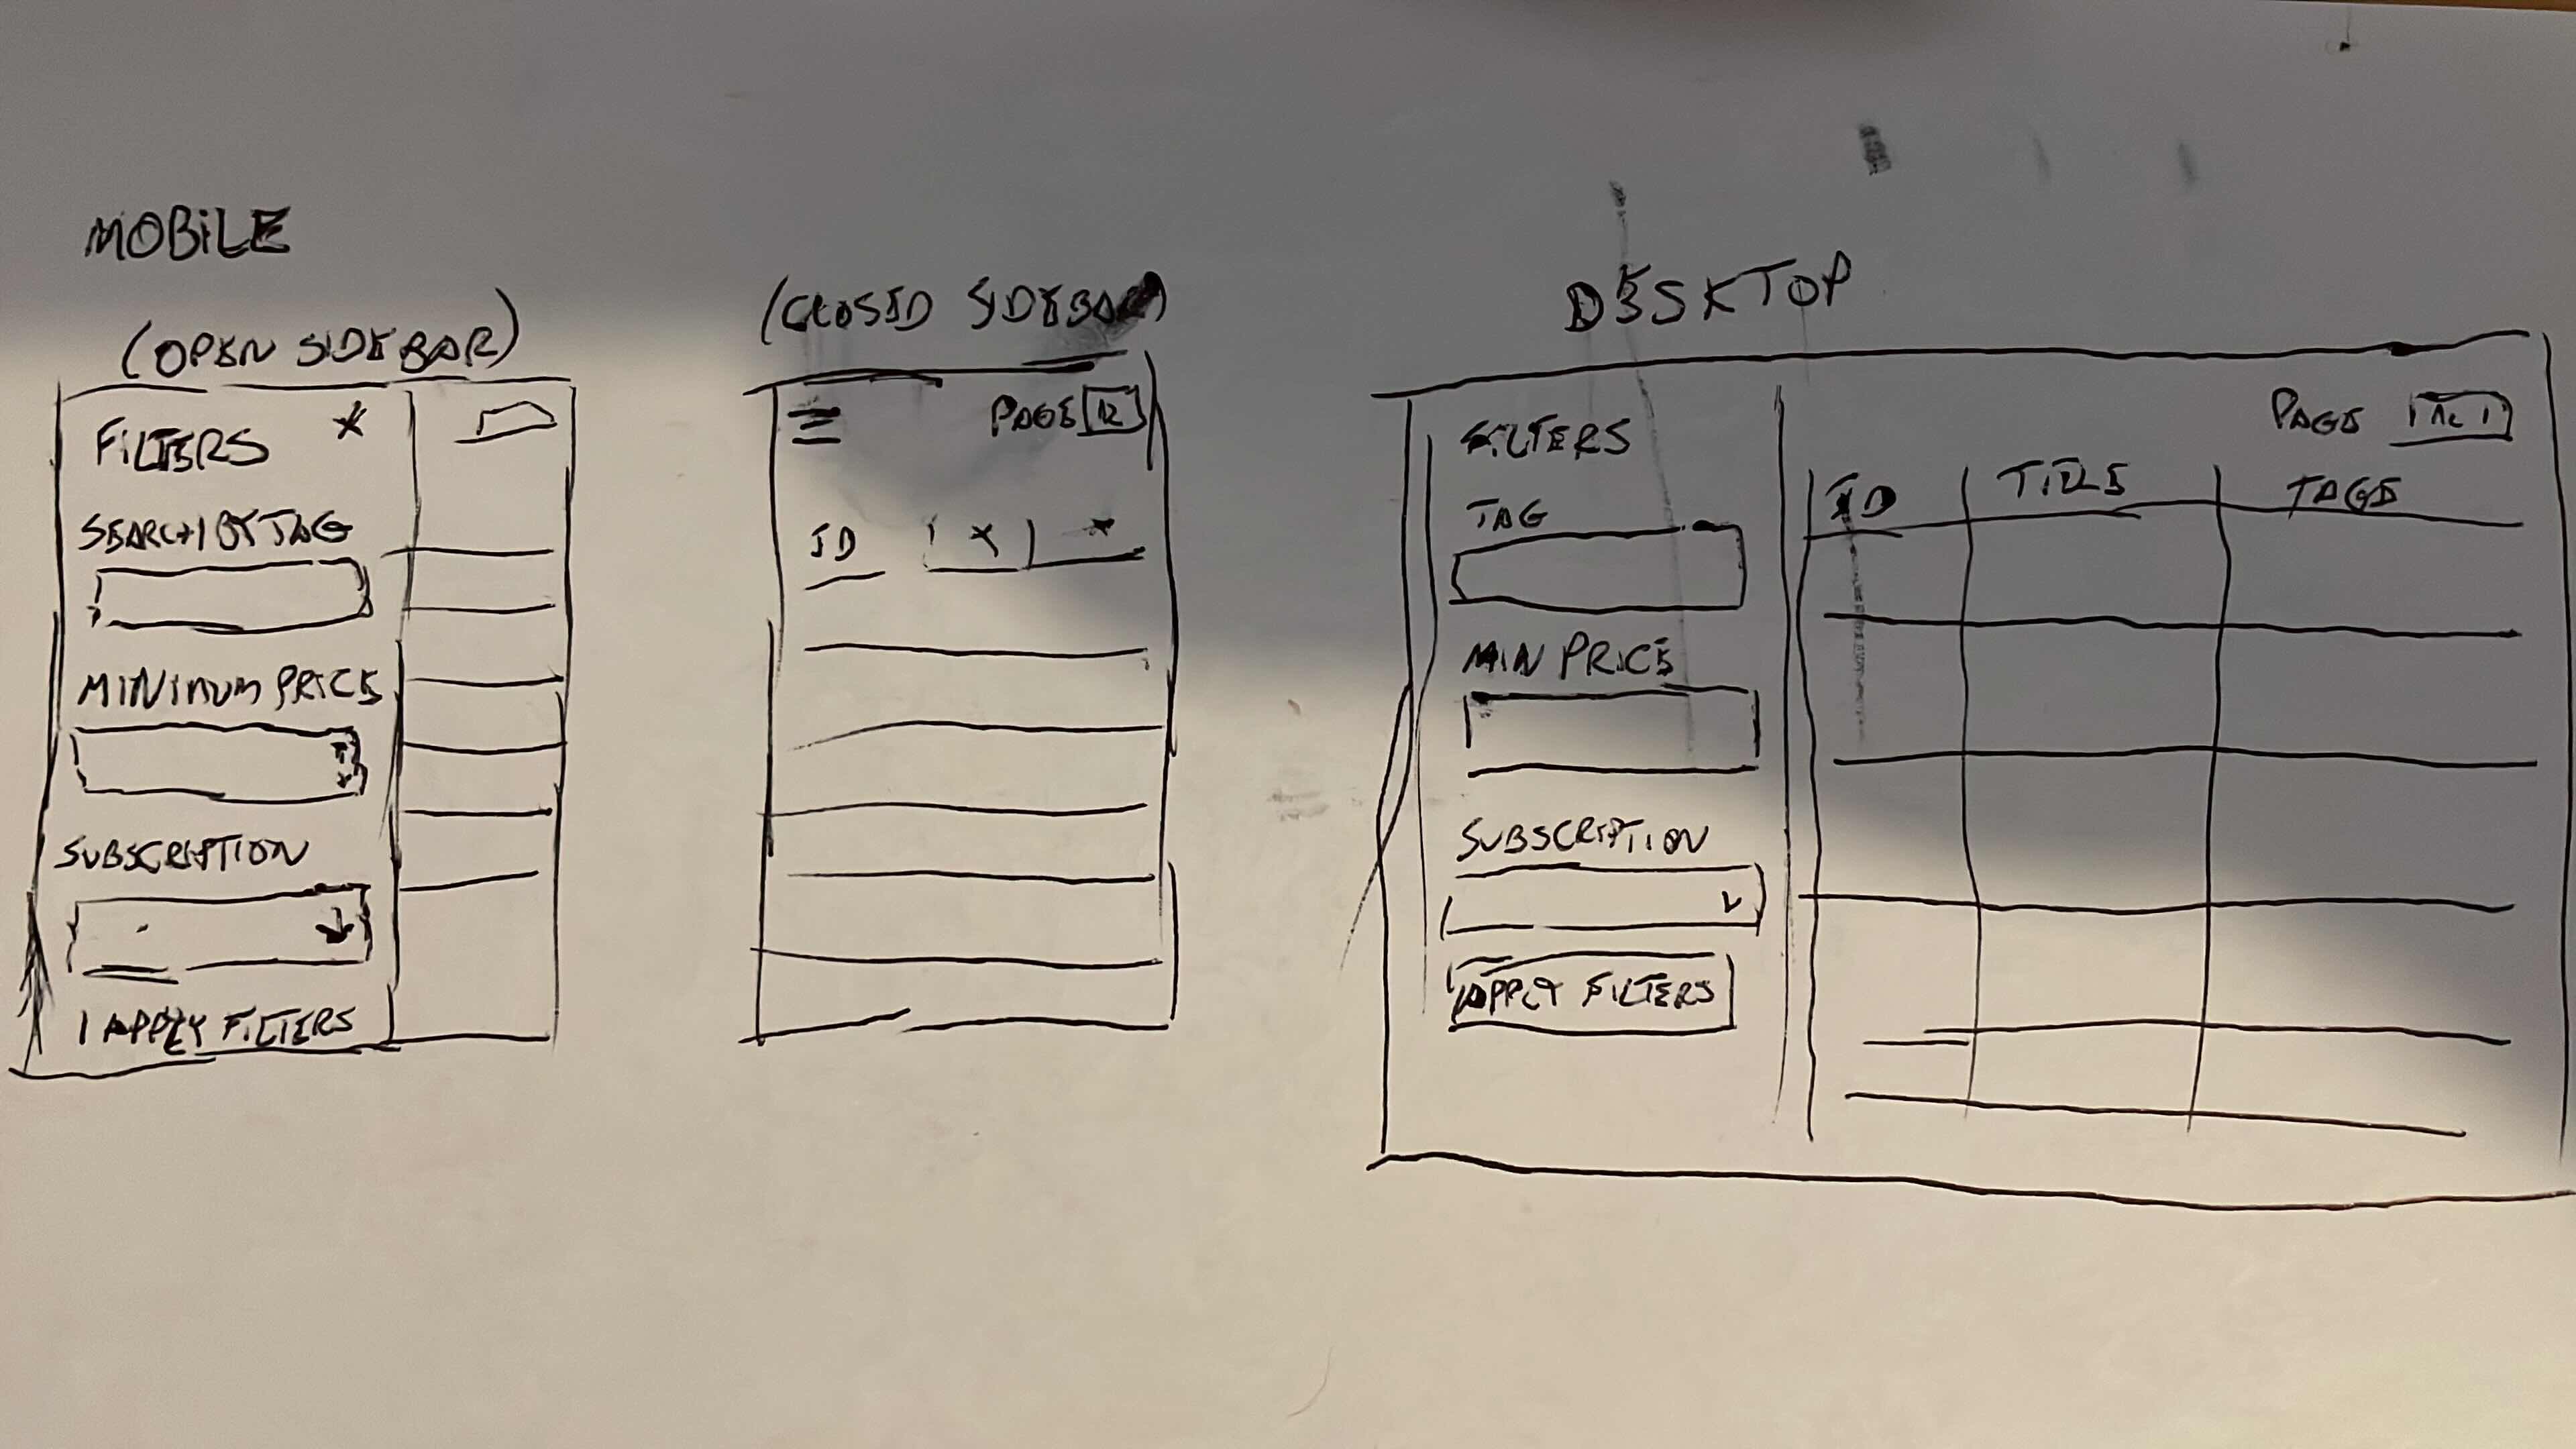 MOBILE
(OPEN SIDEBAR)
FILTERS X
SEARCH BY TAG
MINIMUM PRICE
SUBSCRIPTION
APPLY FILTERS
(CLOSED SIDEBAR)
PAGE 12
ID
DESKTOP
FILTERS
TAG
MIN PRICE
SUBSCRIPTION
APPLY FILTERS
PAGE
ID TITLE TAGS